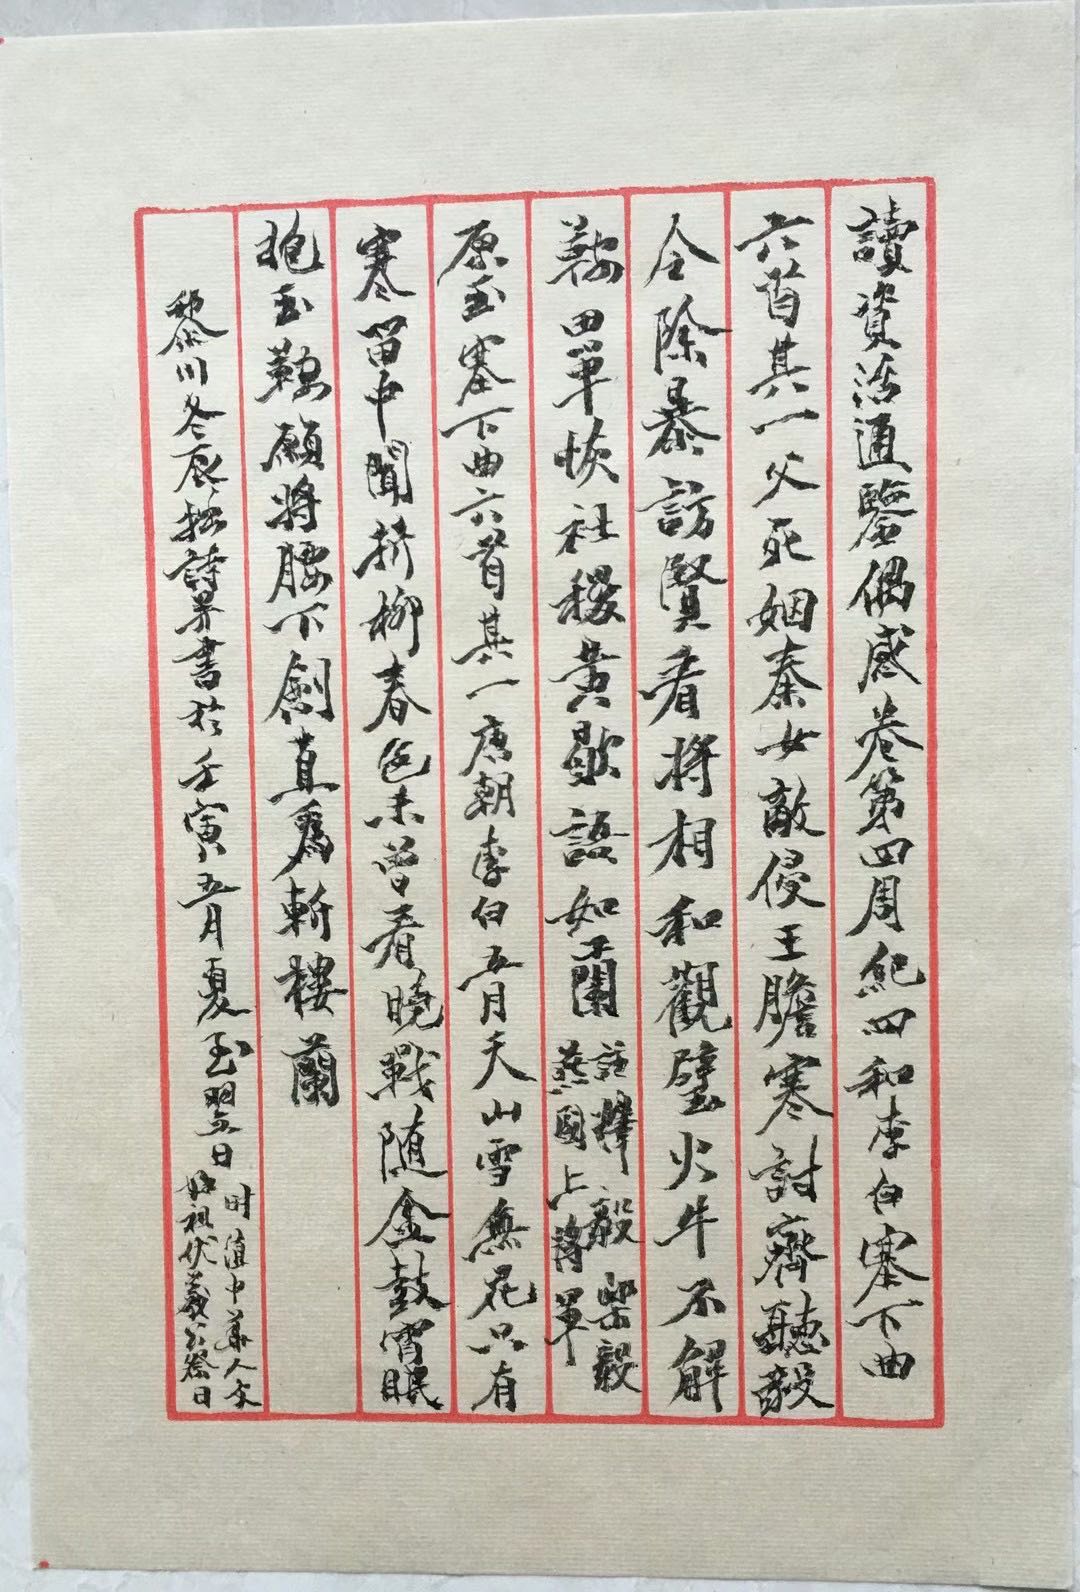 讀資治通鑒偶感卷第四周紀四和李白塞下曲
六首其一父死姻秦女敵侵王膽寒討齊聽毅
全除暴訪賢看將相和觀璧火牛不解
鞍田單恢社稷黃歇語如蘭註釋毅樂毅
燕國上將軍
原玉塞下曲六首其一唐朝李白五月天山雪無花只有
寒笛中聞折柳春色未曾看曉戰随金鼓宵眠
抱玉鞍願將腰下劍直爲斬樓蘭
黎川冬辰拙詩并書於壬寅五月夏至翌日时值中華人文
始祖伏羲公祭日